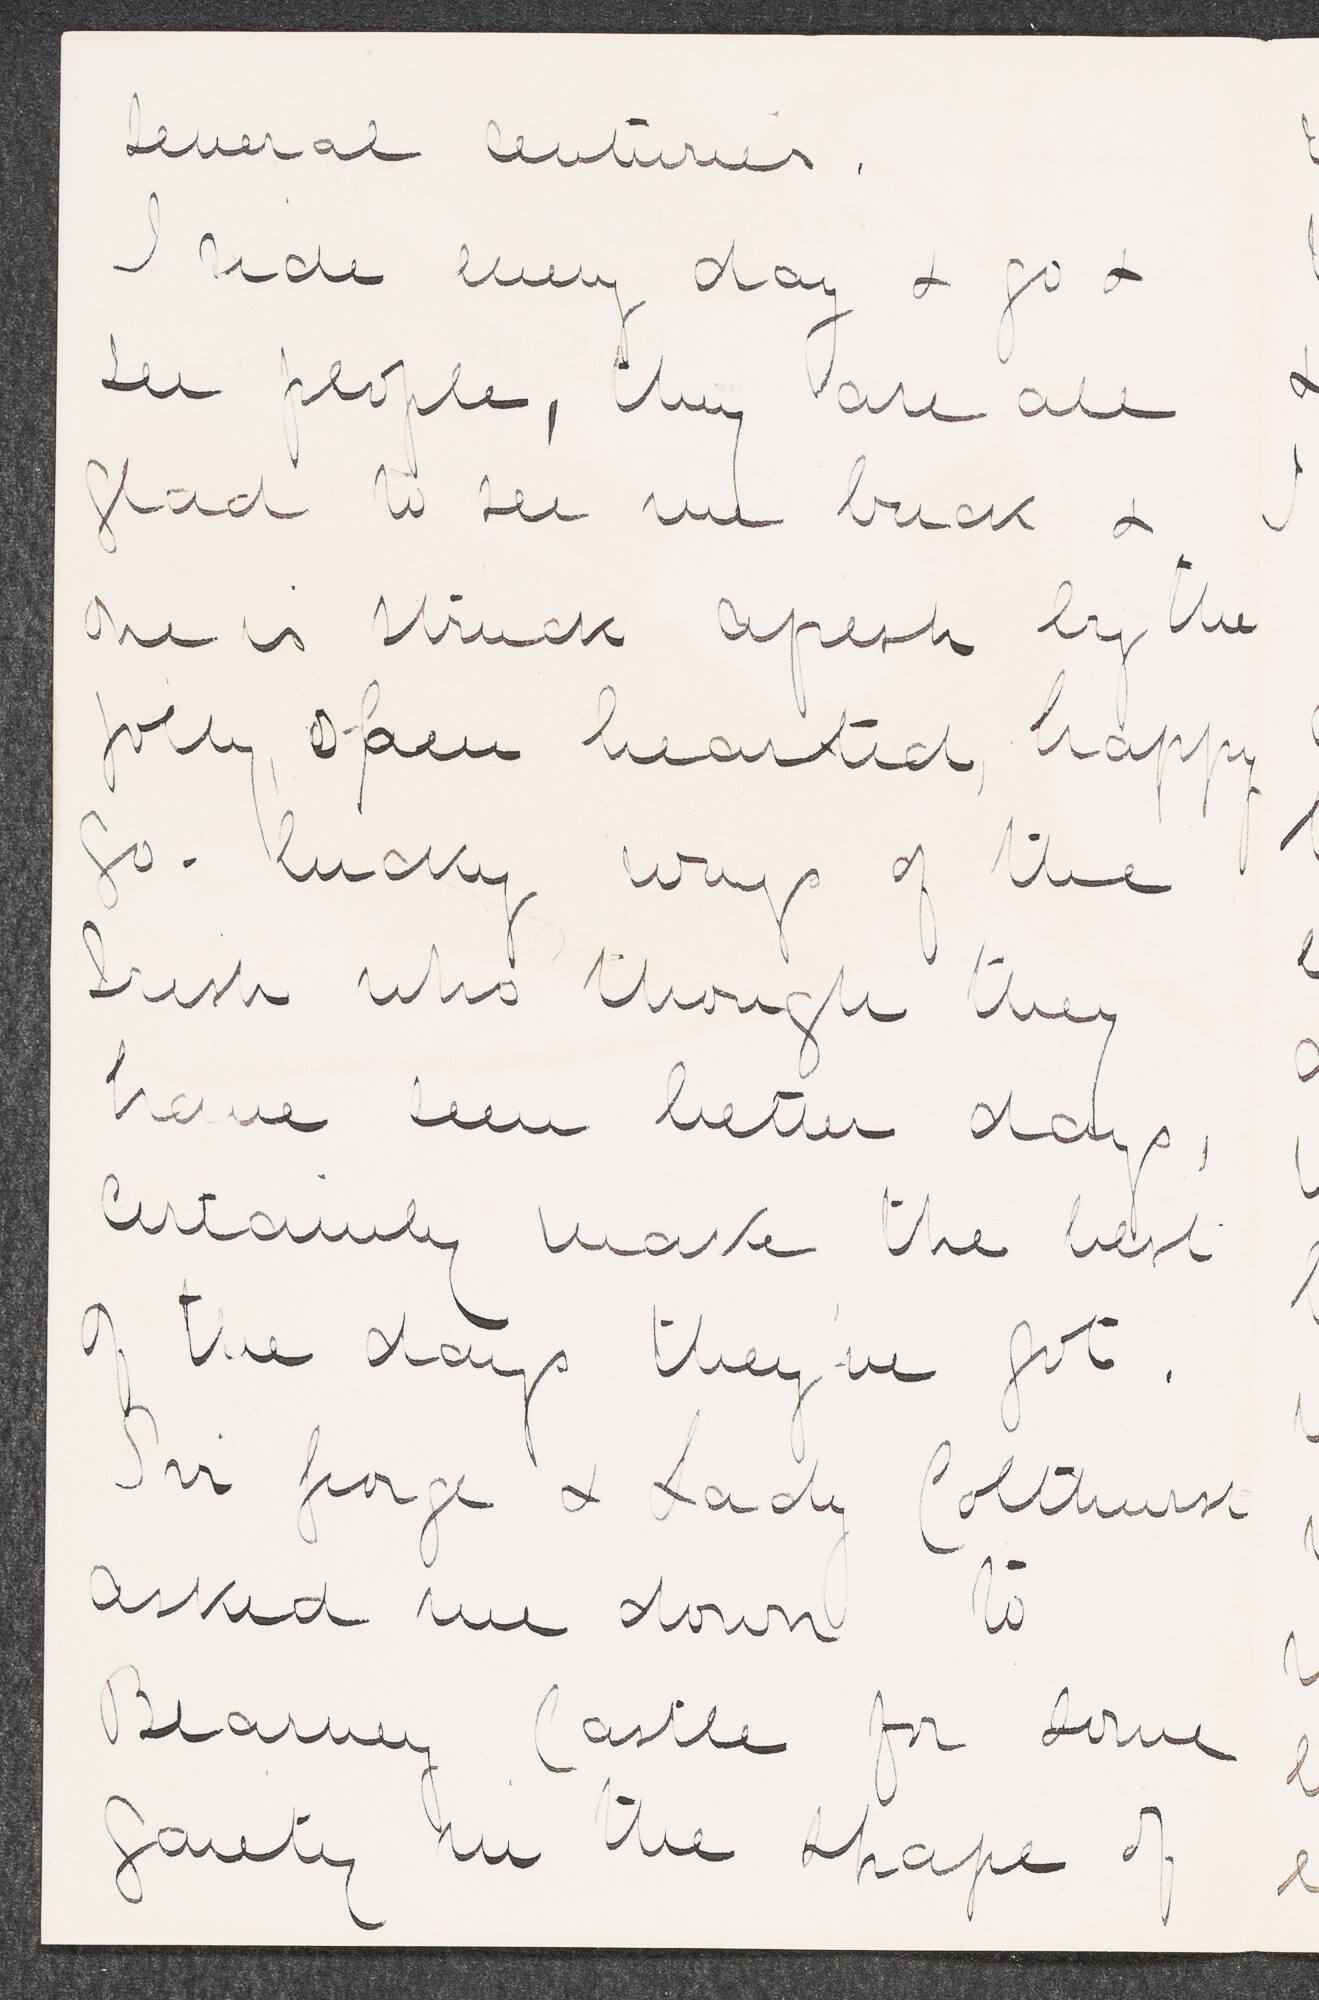 several centuries.
I ride every day & go &
see people, they are all
glad to see me back &
one is struck afresh by the
jolly, open hearted, happy
go-lucky ways of the
Irish who though they
have seen better days,
certainly make the best
of the days they've got.
Sir George & Lady Colthurst
asked me down to
Blarney Castle for some
gaiety in the shape of